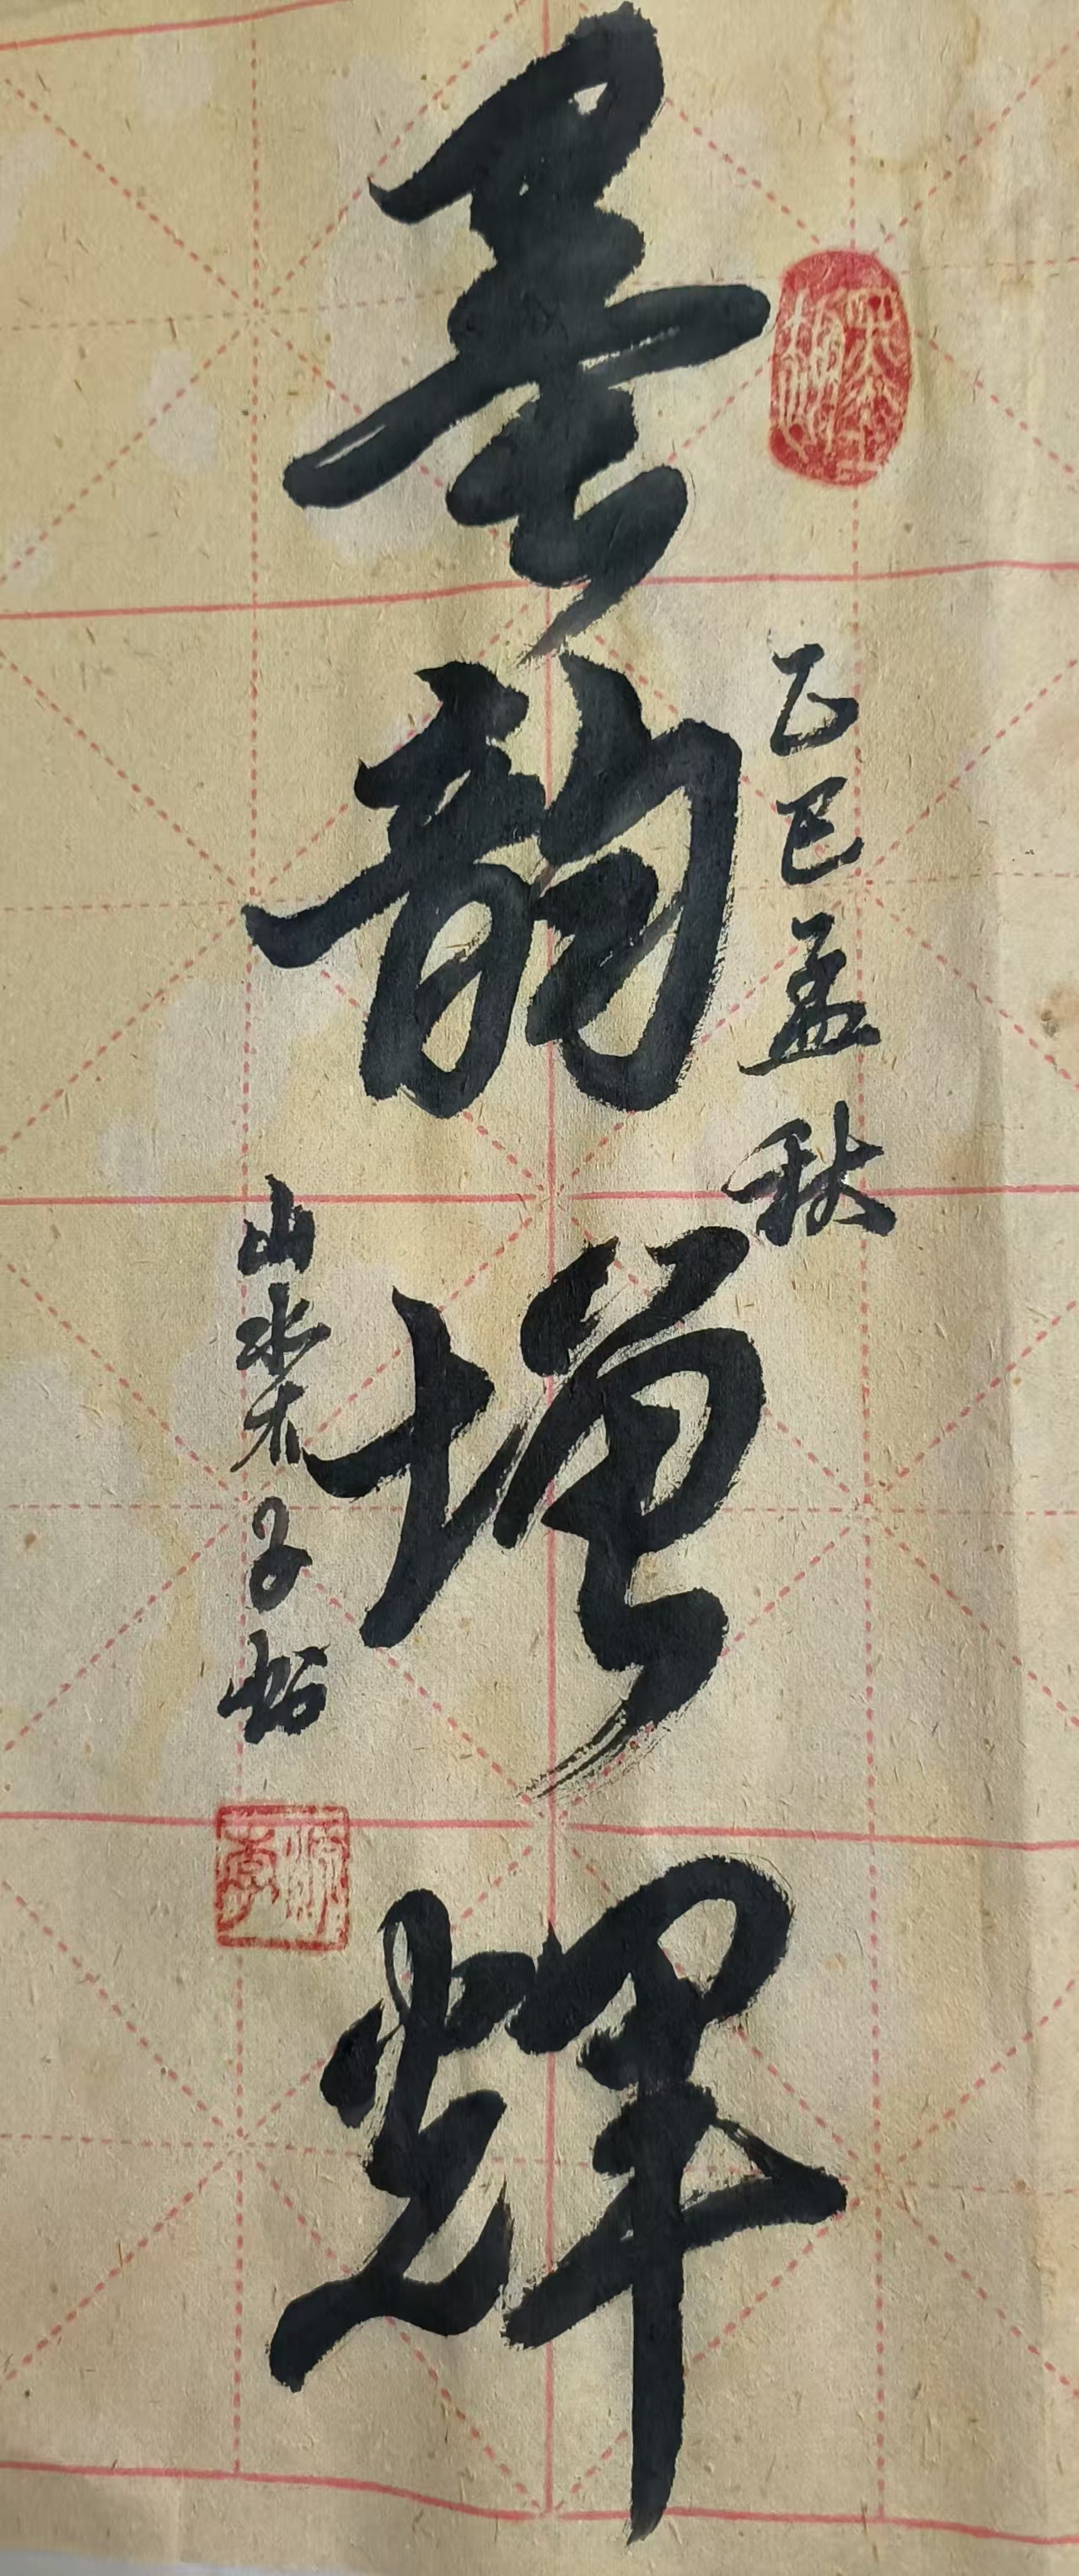 乙巳孟秋
墨韵增辉
山水天子书